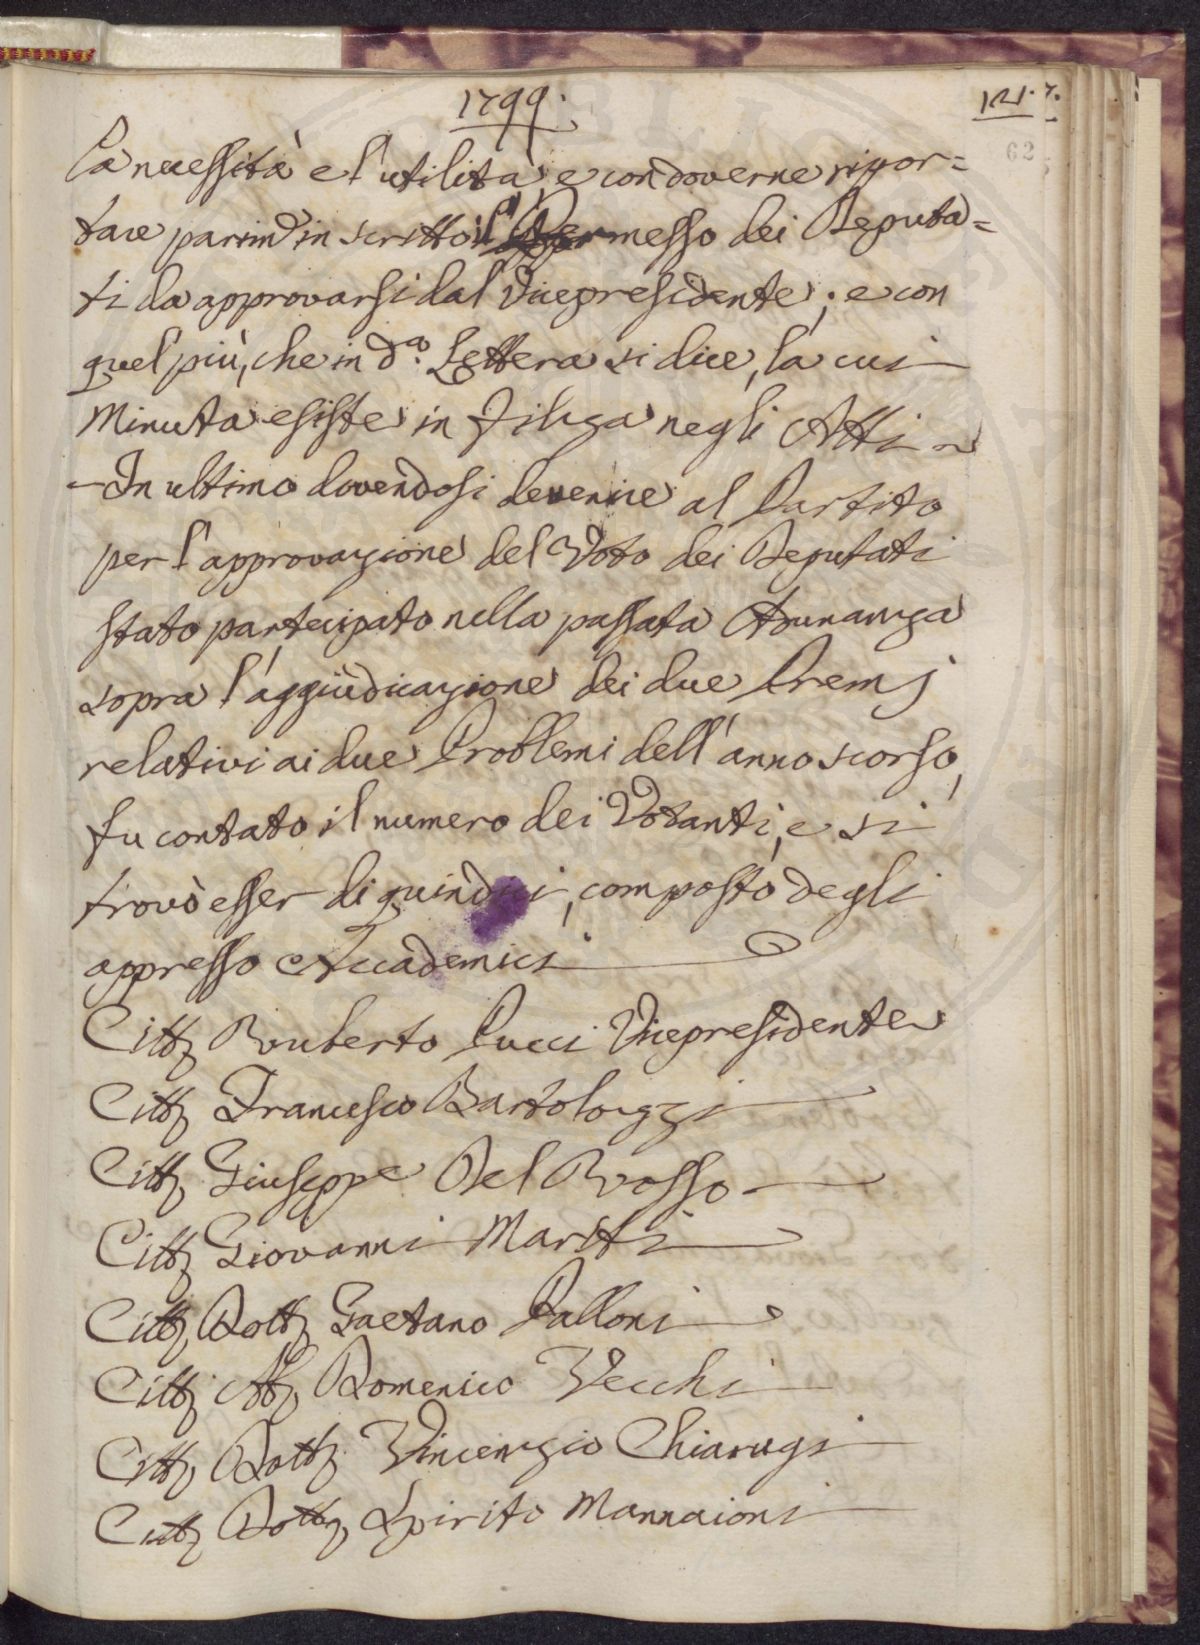 1799.
121. 7.
62
la necessità e l'utilità, e con doverne ripor=
tare parim.e in scritto il Permesso dei Deputa=
ti da approvarsi dal Vicepresidente; e con
quel più, che in d.a Lettera si dice, la cui
Minuta esiste in Filza negli Atti
In ultimo dovendosi devenire al Partito
per l'approvazione del Voto dei Deputati
stato partecipato nella passata Adunanza
sopra l'aggiudicazione dei due Premj
relativi ai due Problemi dell'anno scorso,
fu contato il numero dei Votanti, e si
trovò esser di quindici, composto degli
appresso Accademici
Citt. Ruberto Pucci Vicepresidente
Citt. Francesco Bartolozzi
Citt. Giuseppe Del Rosso
Citt. Giovanni Mariti
Citt. Dott. Gaetano Palloni
Citt. Ab. Domenico Vecchi
Citt. Dott. Vincenzio Chiarugi
Citt. Dott. Spirito Mannaioni